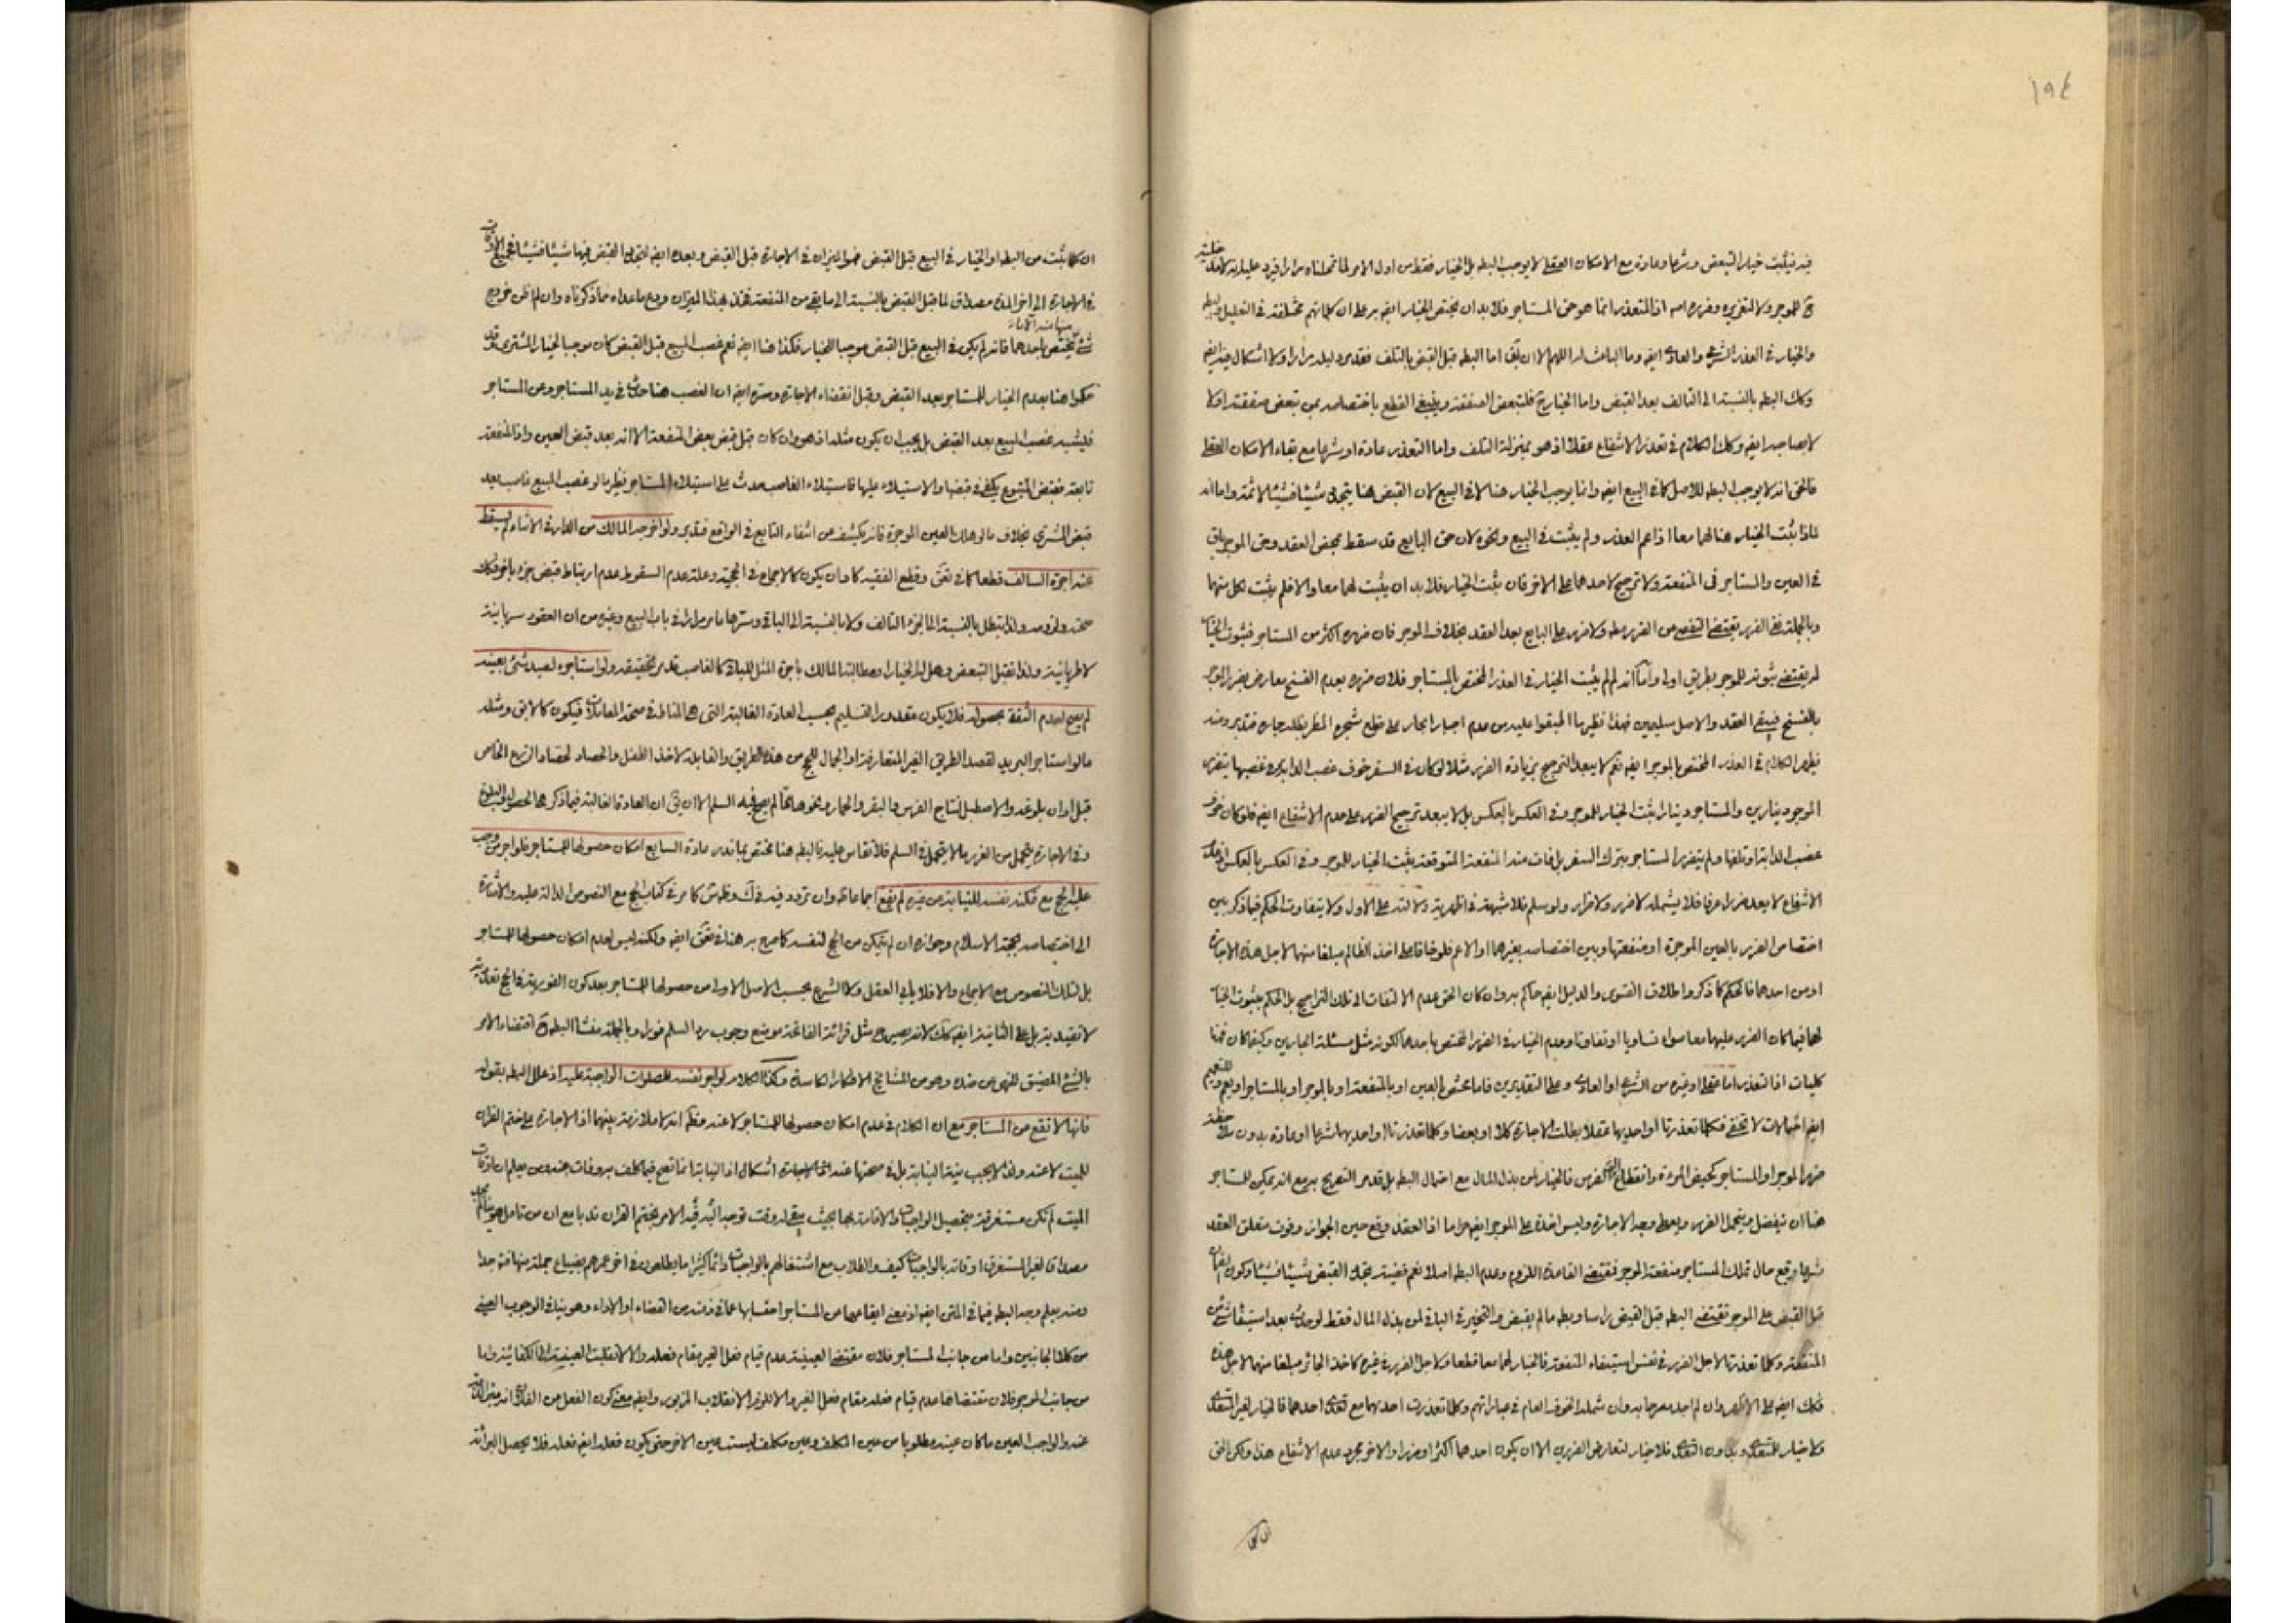 ١٩٤
فيه فيثبت خيار التبعض وشرعا وعادة مع الامكان العقلي لا يوجب البطه بل الخيار فقط من اول الامر لما تحملناه مرارا فيرد عليه انه لا مدخلية
ح للموجر ولا لتغريره وضرره اصه اذ المتعذر انما هو حق المستاجر فلا بد ان يختص الخيار ايضه به على ان كلماتهم مختلفة في التعليل والبطه
والخيار في العذر الشرعي والعادي ايضه وما الباعث له اللهم الا ان يق اما البطه قبل القبض بالتلف فقد مر دليله مرارا ولا اشكال فيه ايضه
وكك البطه بالنسبة الى التالف بعد القبض واما الخيار ح فلتبعض الصفقة وينبغي القطع باختصاصه بمن تبعض صفقته اولا
لا بصاحبه ايضه وكك الكلام في تعذر الانتفاع عقلا اذ هو بمنزلة التلف واما التعذر عادة او شرعا مع بقاء الامكان العقلي
فالحق انه لا يوجب البطه للاصل كما في البيع ايضه وانما يوجب الخيار هنا لا في البيع لان القبض هنا يتجدد شيئا فشيئا لا ثمة واما انه
لماذا يثبت الخيار هنا لهما معا اذا عم العذر ولم يثبت في البيع ونحوه لان حق البايع قد سقط بمحض العقد وحق الموجر باق
في العين والمستاجر في المنفعة ولا ترجيح لاحدهما على الاخر فان يثبت الخيار فلا بد ان يثبت لهما معا والا فلم يثبت لكل منهما
وبالجملة نفي الضرر يقتضي التفصي من الضرر مطه ولا ضرر على البايع بعد العقد بخلاف الموجر فان ضرره اكثر من المستاجر فثبوت الخيار
له يقتضي ثبوته للموجر بطريق اولى واما انه لم لم يثبت الخيار في العذر المختص بالمستاجر فلان ضرره بعدم الفسخ معارض بضرر الموجر
بالفسخ فيبقى العقد والاصل سليمين فهذا نظير ما اطبقوا عليه من عدم اجبار الجار على قطع شجره المضر بظله جاره فتدبر ومنه
يظهر الكلام في العذر المختص بالموجر ايضه نعم لا يبعد الترجيح بزيادة الضرر مثلا لو كان في السفر خوف غصب الدابة وفي غصبها يتضرر
الموجر دينارين والمستاجر دينارا يثبت الخيار للموجر وفي العكس بالعكس بل لا يبعد ترجيح الضرر على عدم الانتفاع ايضه فلو كان خوف
غصب الدابة او تلفها ولم يتضرر المستاجر بترك السفر بل فات منه المنفعة المتوقعة يثبت الخيار للموجر وفي العكس بالعكس اذ عدم
الانتفاع لا يعد ضررا عرفا فلا يشمله لا ضرر ولا ضرار ولو سلم فلا شبهة في اظهرية دلالته على الاول ولا يتفاوت الحكم فيما ذكر بين
اختصاص الضرر بالعين الموجرة او منفعتها وبين اختصاصه بغيرهما او الاعم فلو خافا على اخذ الظالم مبلغا منهما لاجل هذه الاجارة
او من احدهما فالحكم كما ذكر واطلاق الفتوى والدليل ايضه حاكم به وان كان الحق عدم الالتفات الى تلك التراجيح بل الحكم بثبوت الخيار
لهما فيما كان الضرر عليهما معا سواء تساويا او تفاوتا وعدم الخيار في الضرر المختص باحدهما لكونه مثل مسئلة الجارين وكيفما كان فهنا
كليات اذ التعذر اما عقلي او غيره من الشرعي او العادي وعلى التقديرين فاما مختص بالعين او بالمنفعة او بالموجر او بالمستاجر او يعم وللتعميم
ايضه احتمالات لا تخفى فكلما تعذرتا او احديهما عقلا بطلت الاجارة كلا او بعضا وكلما تعذرتا او احديهما شرعا او عادة بدون ملاحظة
ضرر الموجر او المستاجر كحيض المرءة وانقطاع الفرس فالخيار لمن بذل المال مع احتمال البطه بل قد مر التصريح به مع انه يمكن للمستاجر
هنا ان يتفضل ويتحمل الضرر ويعطي وجه الاجارة وليس اخذه على الموجر ايضه حراما اذ العقد وقع حين الجواز وفوت متعلق العقد
شرعا وقع حال تملك المستاجر منفعة الموجر فمقتضى القاعدة اللزوم وعدم البطه اصلا نعم قضية تجدد القبض شيئا فشيئا وكون الضمان
قبل القبض على الموجر تقتضي البطه قبل القبض راسا وبطه ما لم يقبض والتخيير في الباقي لمن بذل المال فقط لو حدث بعد استيفاء شئ من
المنفعة وكلما تعذرتا لاجل الضرر في نفس استيفاء المنفعة فالخيار لهما معا قطعا ولاجل الضرر في غيره كاخذ الجائر مبلغا منهما لاجل هذه
فكك ايضه على الاظهر وان لم اجد مصرحا به وان شمله الخوف العام في عباراتهم وكلما تعذرت احديهما مع تعدي احدهما فالخيار لغير المتعدي
ولا خيار للمتعدي وبدون التعدي فلا خيار لتعارض الضررين الا ان يكون احدهما اكثر او ضررا والاخر مجرد عدم الانتفاع هذا ولكن الحق
ان كلما
ان كلما يثبت من البطه او الخيار في البيع قبل القبض فهو الميزان في الاجارة قبل القبض وبعده ايضه لتجدد القبض فيها شيئا فشيئا فجميع الاوقات
في الاجارة الى اخر المدة مصداق لما قبل القبض بالنسبة الى ما بقي من المنفعة فخذ بهذا الميزان ودع ما عداه مما ذكرناه وان لم اظن خروج
شئ منها عنه الا ما يختص باحدهما فانه لم يكن في البيع قبل القبض موجبا للخيار فكذا هنا ايضه نعم غصب المبيع قبل القبض كان موجبا لخيار المشتري وقد
حكموا هنا بعدم الخيار للمستاجر بعد القبض وقبل انقضاء الاجارة وسره ايضه ان الغصب هنا حدث في يد المستاجر وعن المستاجر
فليشبه غصب المبيع بعد القبض بل يجب ان يكون مثله اذ هو وان كان قبل قبض بعض المنفعة الا انه بعد قبض العين واذ المنفعة
تابعة فقبض المتبوع يكفي في قبضها والاستيلاء عليها فاستيلاء الغاصب حدث على استيلاء المستاجر نظير ما لو غصب المبيع غاصب بعد
قبض المشتري بخلاف ما لو هلك العين الموجرة فانه يكشف عن انتفاء التابع في الواقع فتدبر ولو اخرجه المالك من الدار في الاثناء لم يسقط
عنه اجرة السالف قطعا كما في تفق وقطع الفقيه كاد ان يكون كالاجماع في الحجية وعلة عدم السقوط عدم ارتباط قبض جزء باخر فكك
صحته ولزومه ولذا تبطل بالنسبة الى الجزء التالف ولا بالنسبة الى الباقي وسرها ما مر مرارا في باب البيع وغيره من ان العقود سريانية
لا طريانية ولذا تقبل التبعض وهل له الخيار او مطالبة المالك باجرة المثل للباقي كالغاصب قد مر تحقيقه ولو استاجره لصيد شئ بعينه
لم يصح لعدم الثقة بحصوله فلا يكون مقدور التسليم بحسب العادة الغالبة التي هي المناط في صحة المعاملات فيكون كالابق ومثله
ما لو استاجر البريد لقصد الطريق الغير المتعارفة او الجمال للحج من هذه الطريق والقابلة لاخذ الطفل والحصاد لحصاد الزرع الخاص
قبل اوان بلوغه والاصطبل لنتاج الفرس والبقر والحمار ونحوها مما لم يصح فيه السلم الا ان يق ان العادة الغالبة فيما ذكر هي الحصول والبلوغ
وفي الاجارة يتحمل من الغرر ما لا يتحمل في السلم فلا تقاس عليه فالبطه هنا مختص بما ندر عادة السابع امكان حصولها للمستاجر فلو اجر من وجب
عليه الحج مع تمكنه نفسه للنيابة عن غيره لم يقع اجماعا ظه وان تردد فيه في ك وظهر ش كما مر في كتاب الحج مع النصوص الدالة عليه والاشارة
الى اختصاصه بحجة الاسلام وجوازه ان لم يتمكن من الحج لنفسه كما صرح به هنا في تفق ايضه ولكنه ليس لعدم امكان حصولها للمستاجر
بل لتلك النصوص مع الاجماع والا فلا يابى العقل ولا الشرع بحسب الاصل الاولي من حصولها للمستاجر بعد كون الفورية في الحج تعددية
لا تقييدية بل على الثانية ايضه كك لانه يصير ح مثل قرائة الفاتحة موضع وجوب رد السلم فورا وبالجملة منشأ البطه ح اقتضاء الامر
بالشئ المضيق للنهي عن ضده وهو من المشايخ الافكار الكاسدة وكذا الكلام لو اجر نفسه للصلوات الواجبة عليه اذ علل البطه بقوله
فانها لا تقع من المستاجر مع ان الكلام في عدم امكان حصولها للمستاجر لا عنه فظهر انه لا ملازمة بينهما اذ الاجارة على ختم القران
للميت لا عنه ولذا لا يجب نية النيابة بل في صحتها عنه الاجارة اشكال اذ النيابة انما تصح فيما كلف به وفات عنه ومن يعلم ان اوقات
الميت لم تكن مستغرقة بتحصيل الواجبات والافادة بها بحيث يبقى له وقت توجه اليه فيه الامر بختم القران ندبا مع ان من تامل هو سالم لم يجد
مصداقا لغير المستغرق اوقاته بالواجبات كيف والطلاب مع اشتغالهم بالواجبات دائما كثيرا ما يطلعون في اخر عمرهم بضياع جملة منها فتدبر جدا
ومنه يعلم وجه البطه فيما في المتن ايضه اذ معنى ايقاعها عن المستاجر احتسابها عما في ذمته من القضاء او الاداء وهو ينافي الوجوب العيني
من كلا الجانبين واما من جانب المستاجر فلان مقتضى العينية عدم قيام فعل الغير مقام فعله والا لانقلبت العينية الى الكفائية واما
من جانب الموجر فلان مقتضاها عدم قيام فعله مقام فعل الغير والا للزم الانقلاب المزبور وايضه معنى كون الفعل من الفلان انه مبرئ لذمته
عنه والواجب العيني ما كان عينه مطلوبا من عين المكلف وعين مكلف ليست عين الاخر حتى يكون فعله ايضه فعله فلا يحصل البرائة